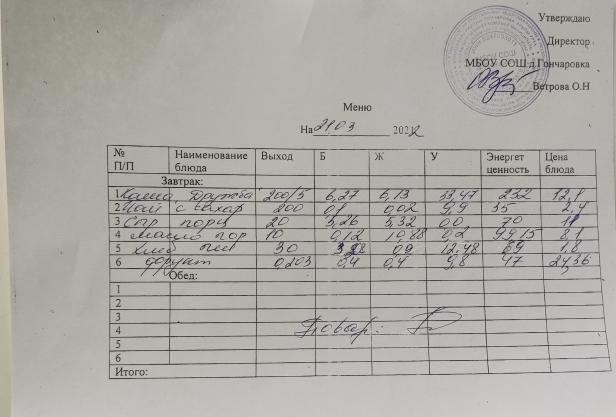 Утверждаю
Директор
МБОУ СОШ д.Гончаровка
Ветрова О.Н
Меню
На 2103 2022
№ П/П Наименование блюда Выход Б Ж У Энергет ценность Цена блюда
Завтрак:
1 Каша "Дружба" 200/5 6,27 6,13 33,47 232 12,1
2 Чай с сахар 200 01 0,02 9,9 35 2,4
3 Сыр порц 20 5,26 5,32 0,0 70 11
4 масло пор 10 0,12 10,88 0,2 99,15 8,1
5 Хлеб 30 0,9 12,48 69 1,8
6 фрукт 0,203 0,4 0,4 9,8 47 24,36
Обед:
1
2
3
4 Повар:
5
6
Итого: